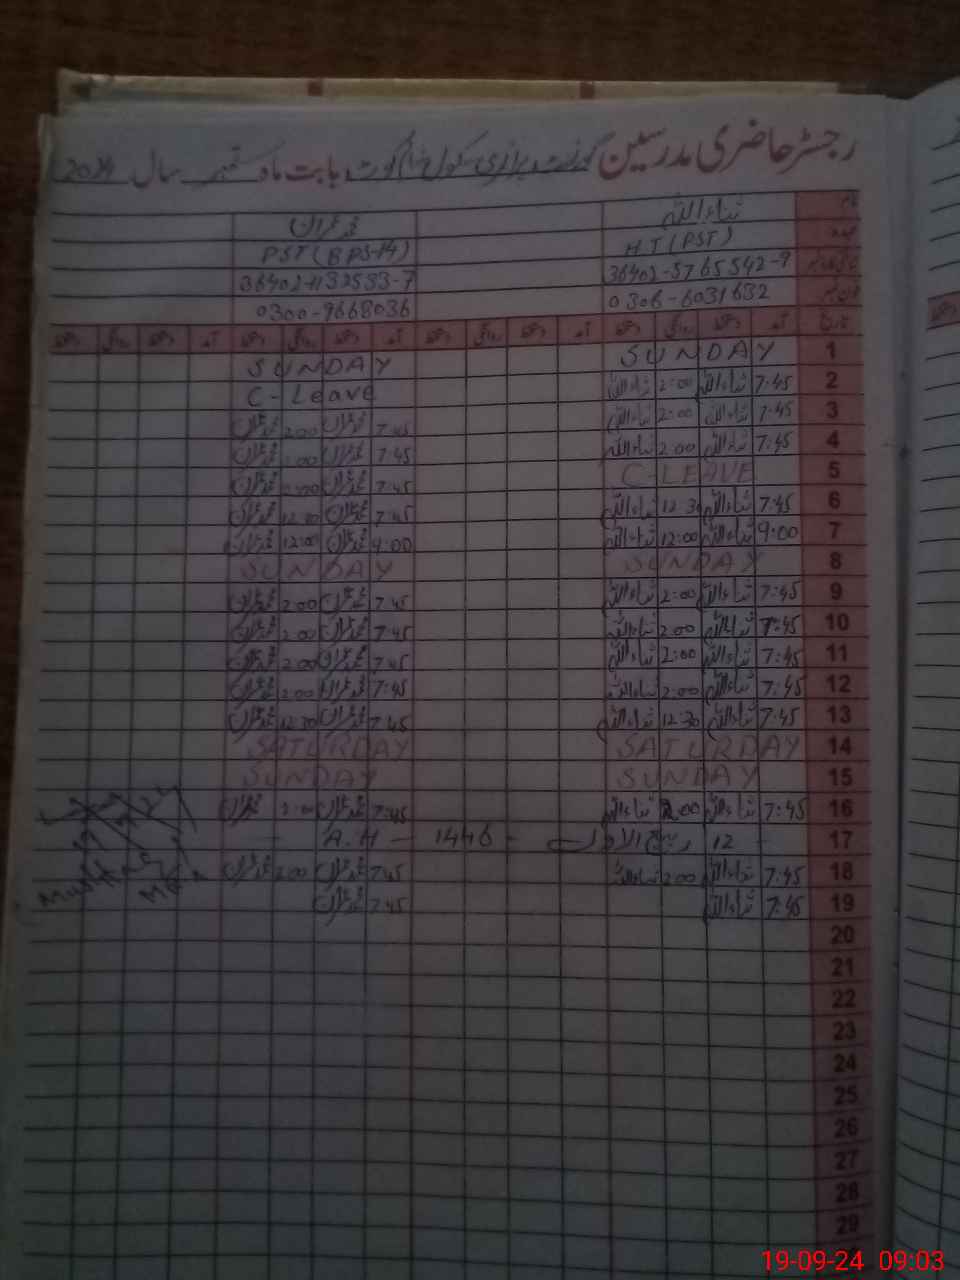 رجسٹر حاضری مدرسین گورنمنٹ پرائمری سکول بابت ماہ ستمبر سال 2024
نام ثناءاللہ محمد عمران
عہدہ HT (PST) PST (BPS-14)
36402-5765542-9 36402-1132533-7
0306-6031632 0300-9668036
تاریخ آمد دستخط روانگی دستخط آمد دستخط روانگی دستخط آمد دستخط روانگی دستخط
1 SUNDAY SUNDAY
2 7:45 ثناءاللہ 2:00 ثناءاللہ C-Leave
3 7:45 ثناءاللہ 2:00 ثناءاللہ 7:45 محمد عمران 2:00 محمد عمران
4 7:45 ثناءاللہ 2:00 ثناءاللہ 7:45 محمد عمران 2:00 محمد عمران
5 C-LEAVE 7:45 محمد عمران 2:00 محمد عمران
6 7:45 ثناءاللہ 12:30 ثناءاللہ 7:45 محمد عمران 12:30 محمد عمران
7 9:00 ثناءاللہ 12:00 ثناءاللہ 9:00 محمد عمران 12:00 محمد عمران
8 SUNDAY SUNDAY
9 7:45 ثناءاللہ 2:00 ثناءاللہ 7:45 محمد عمران 2:00 محمد عمران
10 7:45 ثناءاللہ 2:00 ثناءاللہ 7:45 محمد عمران 2:00 محمد عمران
11 7:45 ثناءاللہ 2:00 ثناءاللہ 7:45 محمد عمران 2:00 محمد عمران
12 7:45 ثناءاللہ 2:00 ثناءاللہ 7:45 محمد عمران 2:00 محمد عمران
13 7:45 ثناءاللہ 12:30 ثناءاللہ 7:45 محمد عمران 12:30 محمد عمران
14 SATURDAY SATURDAY
15 SUNDAY SUNDAY
16 7:45 ثناءاللہ 2:00 ثناءاللہ 7:45 محمد عمران 2:00 محمد عمران
17 12 ربیع الاول - 1446 - A.H -
18 7:45 ثناءاللہ 2:00 ثناءاللہ 7:45 محمد عمران 2:00 محمد عمران
19 7:45 ثناءاللہ 7:45 محمد عمران
20
21
22
23
24
25
26
27
28
29
19-09-24 09:03